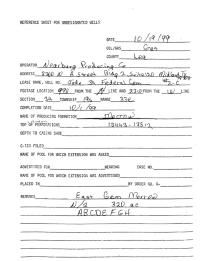 REFERENCE SHEET FOR UNDESIGNATED WELLS
DATE 10/19/99
OIL/GAS Gas
COUNTY Lea
OPERATOR Nearburg Producing Co
ADDRESS 3300 N A Street Bldg 2 Suite 120 Midland Tx
LEASE NAME, WELL NO. Jade 34 Federal Com #2-C
FOOTAGE LOCATION 990 FROM THE N LINE AND 2310 FROM THE W LINE
SECTION 34 TOWNSHIP 19S RANGE 33E
COMPLETION DATE 10/1/99
NAME OF PRODUCING FORMATION Morrow
TOP OF PERFORATIONS 13443-13512
DEPTH TO CASING SHOE
C-123 FILED
NAME OF POOL FOR WHICH EXTENSION WAS ASKED
ADVERTISED FOR HEARING CASE NO.
NAME OF POOL FOR WHICH EXTENSION WAS ADVERTISED
PLACED IN BY ORDER NO. R-
REMARKS East Gem Morrow
N/2 320 ac
ABCDEFGH